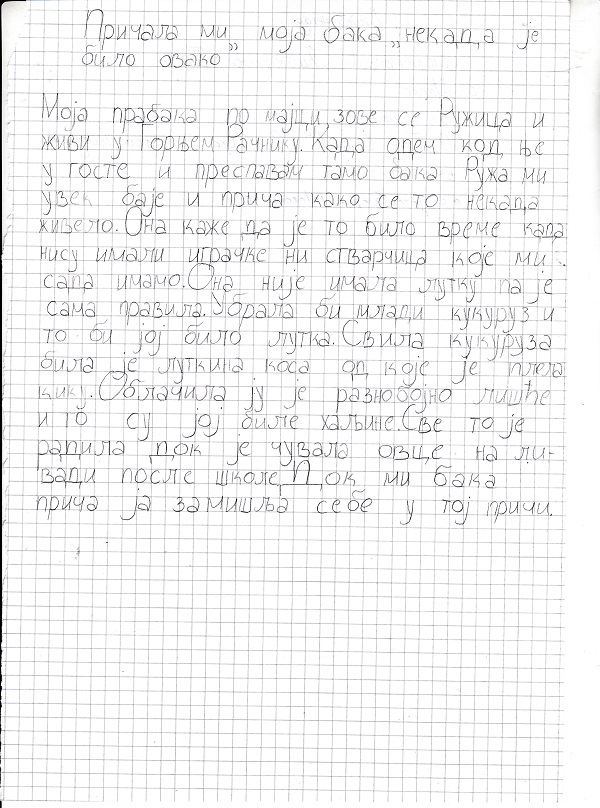 Причала ми моја бака „некада је
било овако”
Моја прабака по мајци, зове се Ружица и
живи у Горњем Рачнику. Када одем код ње
у госте и преспавам тамо бака Ружа ми
увек баје и прича како се то некада
живело. Она каже да је то било време када
нису имали играчке ни стварчица које ми
сада имамо. Она није имала лутку па је
сама правила. Убрала би млади кукуруз и
то би јој било лутка. Свила кукуруза
била је луткина коса од које је плела
кику. Облачила ју је разнобојно лишће
и то су јој биле хаљине. Све то је
радила док је чувала овце на ли-
вади после школе. Док ми бака
прича ја замишља себе у тој причи.